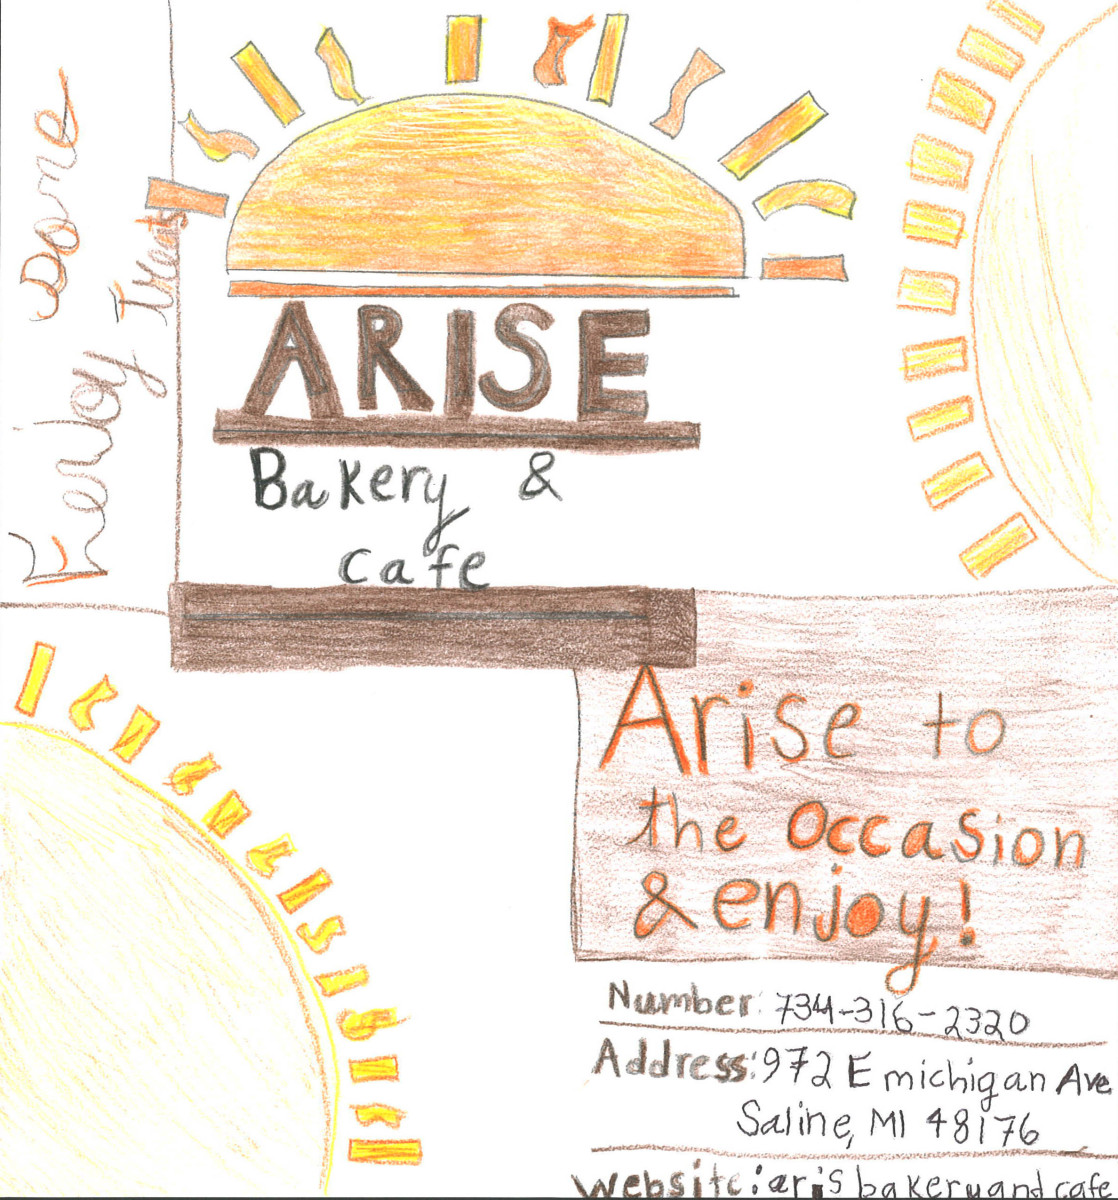 Done
treats
ARISE
Bakery &
cafe
Arise to
the Occasion
& enjoy!
Number: 734-316-2320
Address: 972 E michigan Ave
Saline, MI 48176
website: aris bakeryand cafe